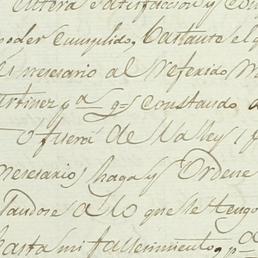 entera satisfaccion y con
poder cumplido, bastante el q
es nesesario al referido M
artinez pa. qe. constando d
o fuere de Valles, y
nesesario, haga y Ordene
tandose a lo que le tengo
hasta mi fallesimiento, pa.